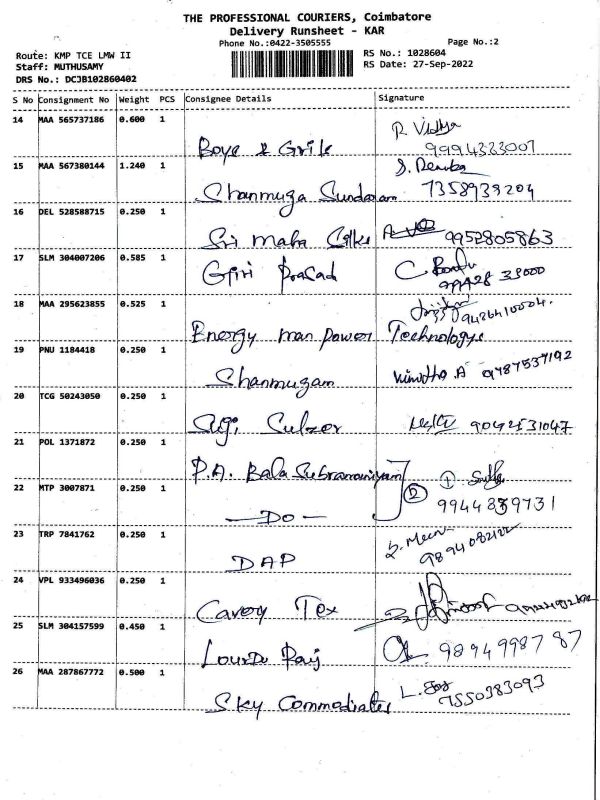 THE PROFESSIONAL COURIERS, Coimbatore
Delivery Runsheet - KAR
Phone No.:0422-3505555 Page No.:2
Route: KMP TCE LMW II RS No.: 1028604
Staff: MUTHUSAMY RS Date: 27-Sep-2022
DRS No.: DCJB102860402
S No Consignment No Weight PCS Consignee Details Signature
14 MAA 565737186 0.600 1 Boye & Grils R Vidhya 9994333007
15 MAA 567380144 1.240 1 Shanmuga Sundaram S. Renuka 7358939204
16 DEL 528588715 0.250 1 Sri maha Silks 9952805863
17 SLM 304007206 0.585 1 Giri Prasad C
18 MAA 295623855 0.525 1 Energy man power Technologys
19 PNU 1184418 0.250 1 Shanmugam Vinotha.A 9787537192
20 TCG 50243050 0.250 1 Sulzer
21 POL 1371872 0.250 1 P.A. Bala Subramaniyam 1
22 MTP 3007871 0.250 1 -DO- 2
23 TRP 7841762 0.250 1 DAP S. Meena
24 VPL 933496036 0.250 1 Cavery Tex
25 SLM 304157599 0.450 1 Lourdu Raj 9894999787
26 MAA 287867772 0.500 1 Sky Commodiates L. 7550383093